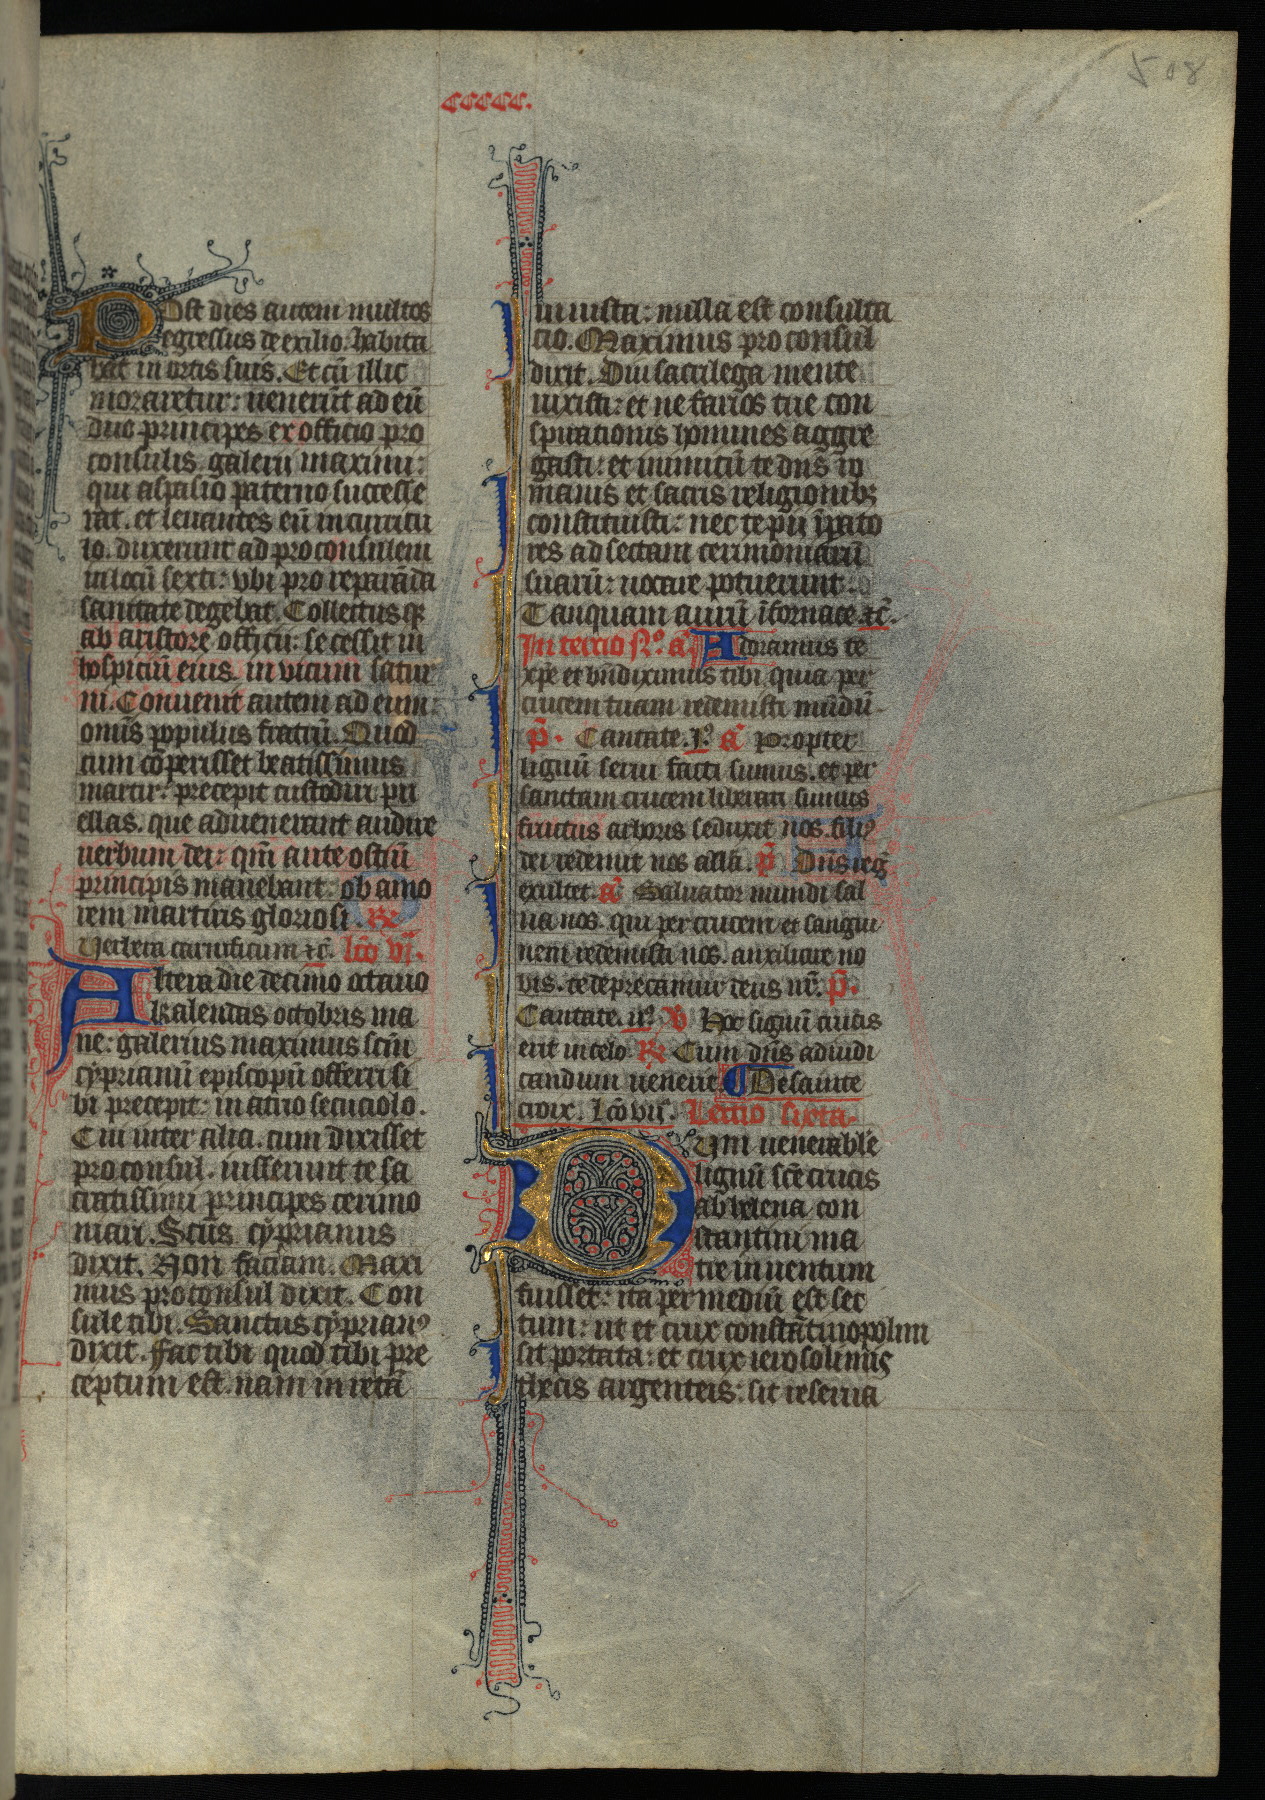 508
ccccc.
Post dies autem multos
egressus de exilio. habita
bat in ortis suis. Et cũ illic
moraretur: venerũt ad eũ
duo principes ex officio pro
consulis galerii maximi:
qui aspasio paterno successe
rat. et levantes eũ in curricu
lo. duxerunt ad proconsulem
in locũ sexti: ubi pro reparãda
sanitate degebat. Collectus q̃
ab aristore officii: secessit in
hospiciũ eius. in vicum satur
ni. Convenit autem ad eum:
omĩs populus fratrũ. Quod
cum cõperisset beatissimus
martir: precepit custodiri pu
ellas. que advenerant audire
verbum dei: qm̃ ante ostiũ
principis manebant. ob amo
rem martiris gloriosi. R̃
Verbera carnificum ⁊c̃. lc̃o vj.
Altera die decimo octavo
kalendas octobris ma
ne: galerius maximus sc̃m
cẏprianũ episcopũ offerri si
bi precepit: in atrio sauciolo.
Cui inter alia. cum dixisset
proconsul. iusserunt te sa
cratissimi principes cerimo
niari. Sc̃us cẏprianus
dixit. Non faciam. Maxi
mus proconsul dixit. Con
sule tibi. Sanctus cẏprianꝰ
dixit. Fac tibi quod tibi pre
ceptum est. nam in re tã
iniusta: nulla est consulta
cio. Maximus proconsul
dixit. Diu sacrilega mente
vixisti: et nefarios tue con
spirationis homines aggre
gasti: et inimicũ te dñs ro
manis et sacris religionibꝫ
constituisti: nec te pii ĩpato
res ad sectam cerimoniarũ
suarũ: vocare potuerunt.
Tanquam aurũ ĩ fornace. ⁊c̃.
In tercio Nᵒ. ã Adoramus te
xp̃e et bñdiximus tibi quia per
crucem tuam redemisti mũdũ.
p̃. Cantate. jᵒ. ã Propter
lignũ servi facti sumus. et per
sanctam crucem liberati sumus
fructus arboris seduxit nos. filiꝰ
dei redemit nos alla. p̃ Dñs reg̃
exultet. ã Salvator mundi sal
va nos. qui per crucem et sangui
nem redemisti nos. auxiliare no
bis. te deprecamur deus nr̃. p̃.
Cantate. ijᵒ. V Hoc signũ crucis
erit in celo. R̃ Cum dñs ad iudi
candum venerit. De sainte
croix. lc̃o vij. Lectio sixta.
Cum venerabile
lignũ sc̃e crucis
ab helena con
stantini ma
tre inventum
fuisset: ita per mediũ est sec
tum: ut et crux constãtinopolim
sit portata: et crux ierosolimis
thecis argenteis: sit reserva